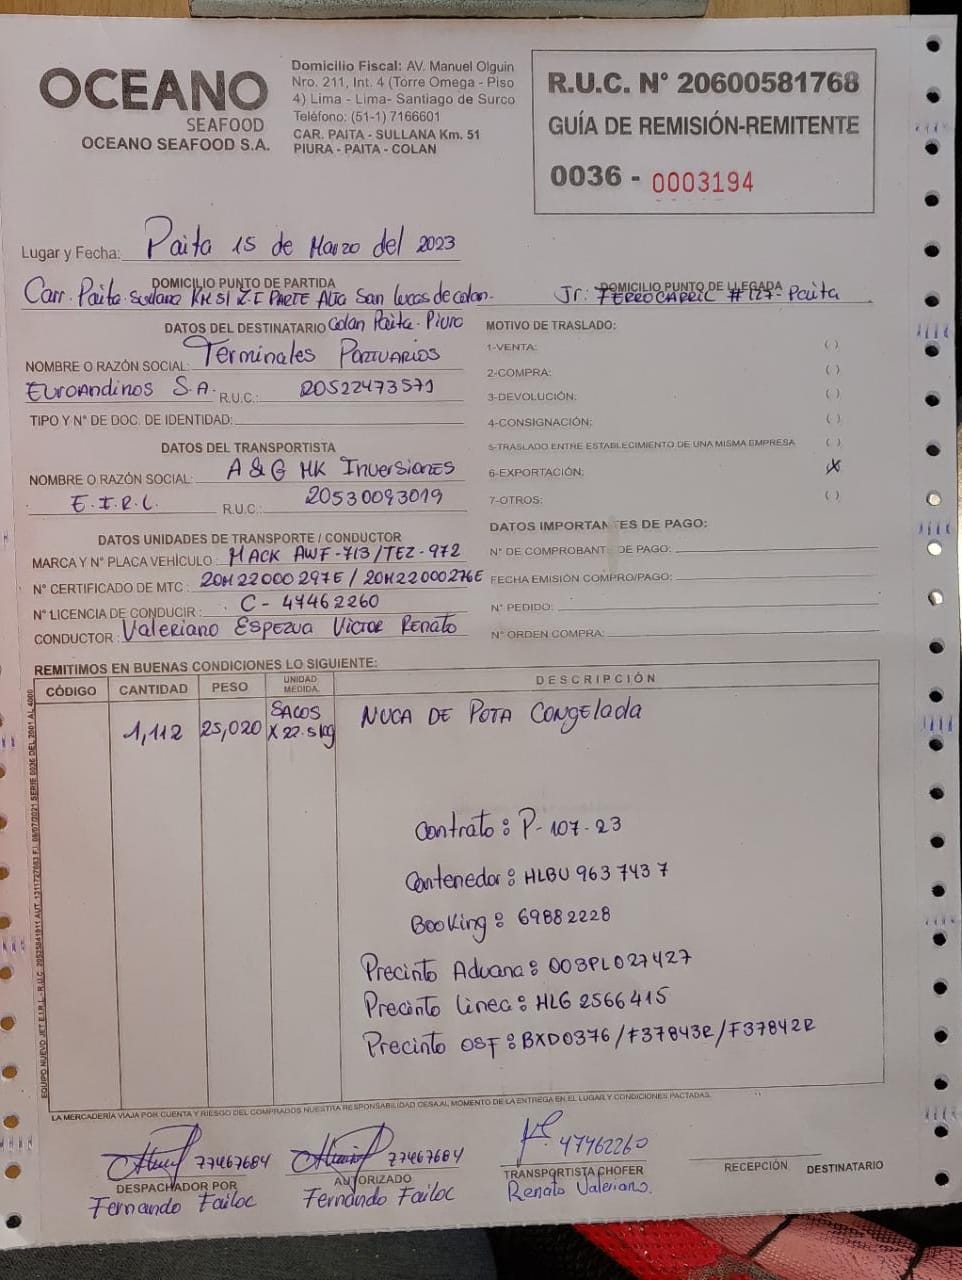 OCEANO
SEAFOOD
OCEANO SEAFOOD S.A.
Domicilio Fiscal: AV. Manuel Olguin
Nro. 211, Int. 4 (Torre Omega - Piso
4) Lima - Lima- Santiago de Surco
Teléfono: (51-1) 7166601
CAR. PAITA - SULLANA Km. 51
PIURA - PAITA - COLAN
R.U.C. N° 20600581768
GUÍA DE REMISIÓN-REMITENTE
0036 - 0003194
Lugar y Fecha: Paita 15 de Marzo del 2023
DOMICILIO PUNTO DE PARTIDA
Carr. Paita Sullana KM 51 Z.I PARTE Alta San Lucas de colan.
Colan Paita - Piura
DOMICILIO PUNTO DE LLEGADA
Jr: FERROCARRIL # 127 - Paita
DATOS DEL DESTINATARIO
NOMBRE O RAZÓN SOCIAL: Terminales Portuarios
Euroandinos S.A. R.U.C.: 20522473571
TIPO Y N° DE DOC. DE IDENTIDAD:
DATOS DEL TRANSPORTISTA
NOMBRE O RAZÓN SOCIAL: A & G MK Inversiones
E.I.R.L. R.U.C.: 20530093019
DATOS UNIDADES DE TRANSPORTE / CONDUCTOR
MARCA Y N° PLACA VEHÍCULO: MACK AWF-713/TEZ-972
N° CERTIFICADO DE MTC: 20M22000297E / 20M22000276E
N° LICENCIA DE CONDUCIR: C - 47462260
CONDUCTOR: Valeriano Espezua Victor Renato
MOTIVO DE TRASLADO:
1-VENTA: ( )
2-COMPRA: ( )
3-DEVOLUCIÓN: ( )
4-CONSIGNACIÓN: ( )
5-TRASLADO ENTRE ESTABLECIMIENTO DE UNA MISMA EMPRESA ( )
6-EXPORTACIÓN: X
7-OTROS: ( )
DATOS IMPORTANTES DE PAGO:
N° DE COMPROBANTE DE PAGO:
FECHA EMISIÓN COMPRO/PAGO:
N° PEDIDO:
N° ORDEN COMPRA:
REMITIMOS EN BUENAS CONDICIONES LO SIGUIENTE:
CÓDIGO CANTIDAD PESO UNIDAD MEDIDA DESCRIPCIÓN
1,112 25,020 SACOS X 22.5 kg NUCA DE POTA CONGELADA
Contrato: P-107-23
Contenedor: HLBU 963 743 7
Booking: 69882228
Precinto Aduana: 003PL027427
Precinto Linea: HLG 2566415
Precinto OSF: BXD0376/F37843R/F37842R
LA MERCADERÍA VIAJA POR CUENTA Y RIESGO DEL COMPRADOS NUESTRA RESPONSABILIDAD CESA AL MOMENTO DE LA ENTREGA EN EL LUGAR Y CONDICIONES PACTADAS.
77467684
DESPACHADOR POR
Fernando Failoc
77467684
AUTORIZADO
Fernando Failoc
47462260
TRANSPORTISTA CHOFER
Renato Valeriano.
RECEPCIÓN DESTINATARIO